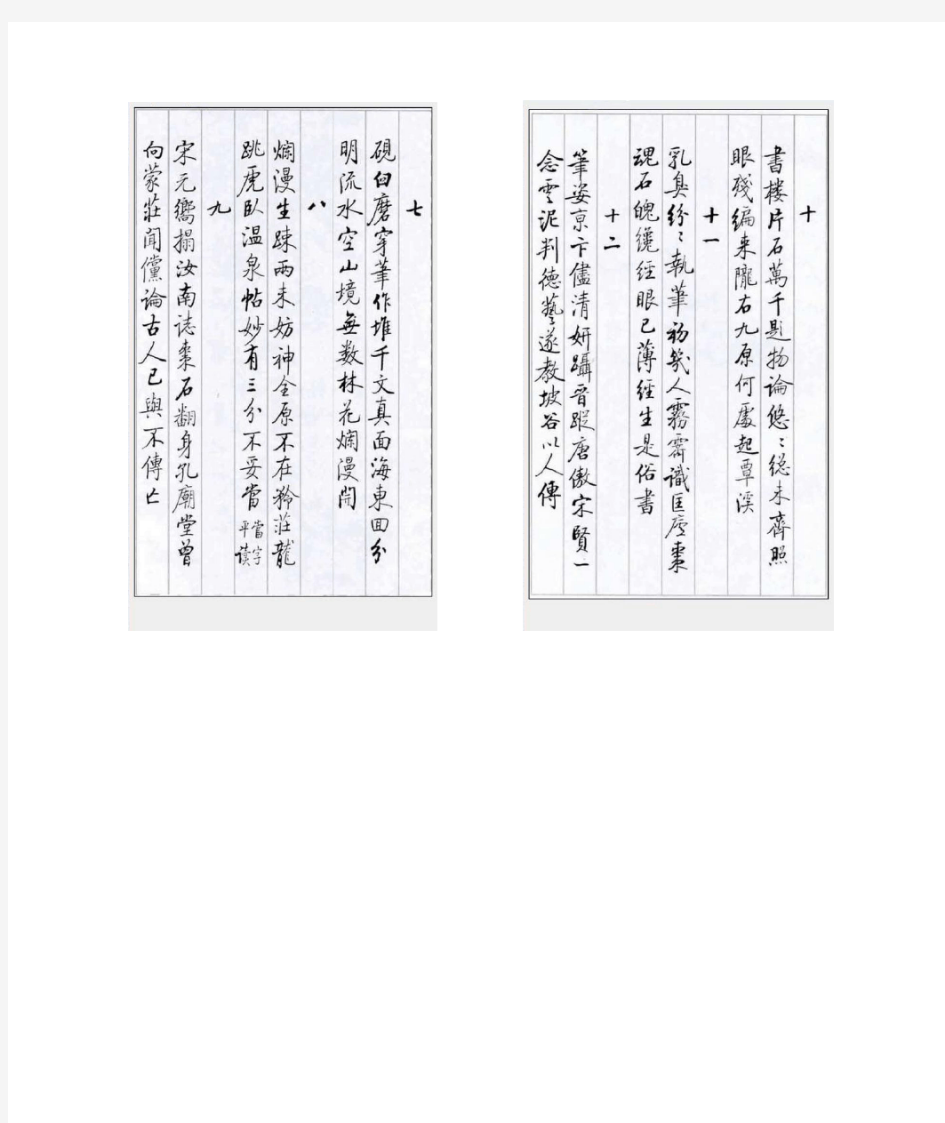 七
硯臼磨穿筆作堆千文真面海東回分
明流水空山境無数林花爛漫開
八
爛漫生疎兩未妨神全原不在矜莊龍
跳虎臥温泉帖妙有三分不妥當
當字
平读
九
宋元嚮搨汝南誌棗石翻身孔廟堂曾
向蒙莊聞儻論古人已與不傳亡
十
書楼片石萬千題物論悠〻總未齊照
眼殘編来隴右九原何處起覃溪
十一
乳臭紛〻執筆初幾人霧霽識匡廬棗
魂石魄纔經眼已薄經生是俗書
十二
筆姿京卞儘清妍躡晉蹤唐傲宋賢一
念雲泥判德藝遂教坡谷以人傳